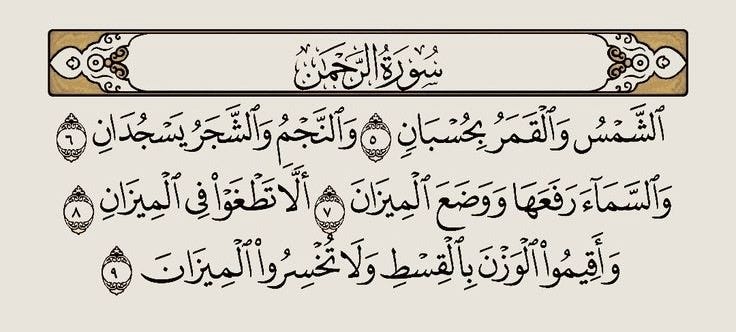 سُورَةُ الرَّحْمَٰن
ٱلشَّمْسُ وَٱلْقَمَرُ بِحُسْبَانٍ ٥ وَٱلنَّجْمُ وَٱلشَّجَرُ يَسْجُدَانِ ٦
وَٱلسَّمَآءَ رَفَعَهَا وَوَضَعَ ٱلْمِيزَانَ ٧ أَلَّا تَطْغَوْا۟ فِى ٱلْمِيزَانِ ٨
وَأَقِيمُوا۟ ٱلْوَزْنَ بِٱلْقِسْطِ وَلَا تُخْسِرُوا۟ ٱلْمِيزَانَ ٩